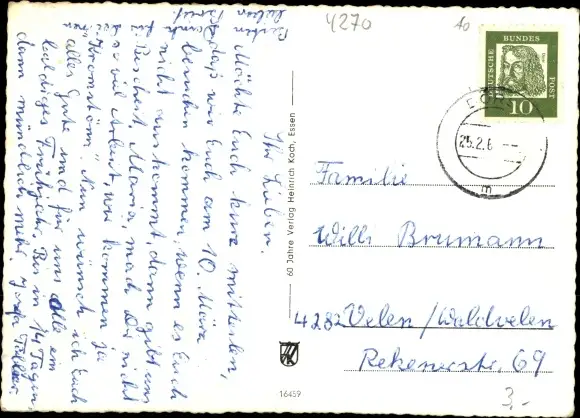 4270
10
DEUTSCHE BUNDES POST
10
25.2.6
m
Besten
lieben
Brief
Ihr Lieben.
Möchte Euch kurz mitteilen,
daß wir Euch am 10. März
besuchen kommen, wenn es Euch
nicht auskommt, dann gibt uns
Bescheid. Maria, mach Dir nicht
so viel Arbeit, wir kommen ja
Nun wünsch ich Euch
alles Gute und für uns alle ein
baldiges Frühjahr. Bis in 14 Tagen,
dann mündlich mehr.
60 Jahre Verlag Heinrich Koch, Essen
Familie
Willi Brumann
4282 Velen/Waldvelen
Rekenerstr. 69
16459
3,-